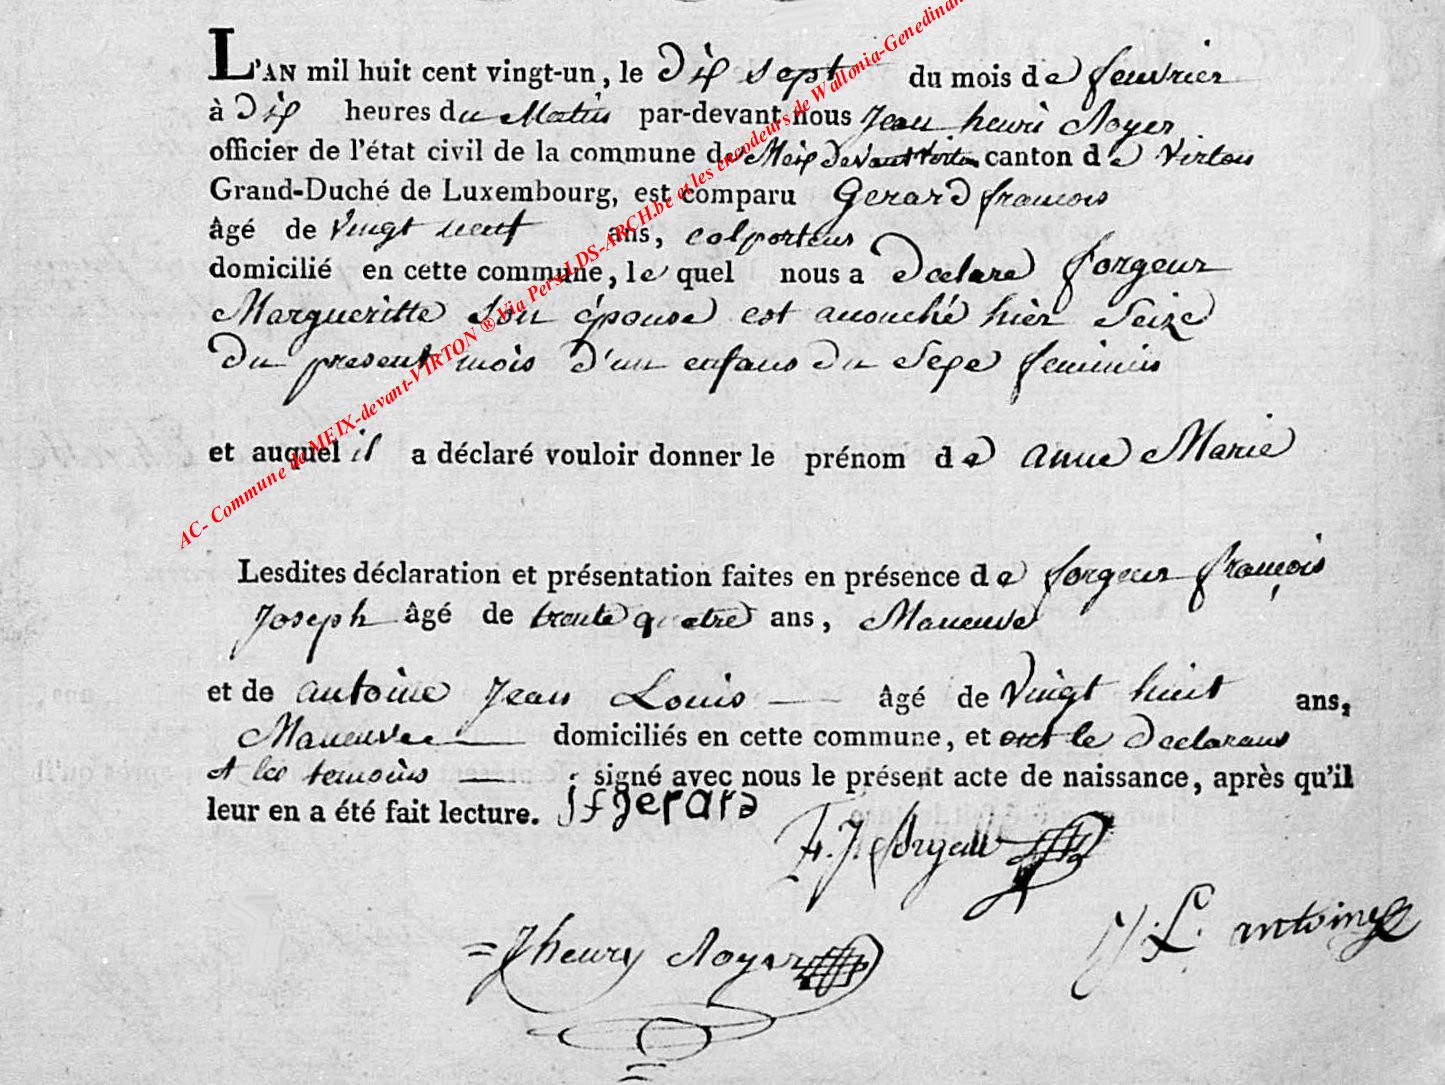 L'AN mil huit cent vingt-un, le Dix sept du mois de fevrier
à Dix heures du Matin par-devant nous Jean henri Noyer
officier de l'état civil de la commune de Meix Devant Virton canton de Virton
Grand-Duché de Luxembourg, est comparu Gerard françois
âgé de Vingt neuf ans, colporteur
domicilié en cette commune, le quel nous a Declaré forgeur
Margueritte Son épouse est acouché hier Seize
Du present mois d'un enfans du Sexe feminin
et auquel il a déclaré vouloir donner le prénom de anne Marie
Lesdites déclaration et présentation faites en présence de forgeur françois
Joseph âgé de trente quatre ans, Maneuve
et de antoine Jean Louis âgé de Vingt huit ans,
Maneuvre domiciliés en cette commune, et ont le Declarans
et les temoins signé avec nous le présent acte de naissance, après qu'il
leur en a été fait lecture. J f gerard
F. J. forgeur
J. L. antoine
J henry Noyer
AC- Commune de MEIX-devant-VIRTON ® Via Pers-LDS-ARCH.be et les encodeurs de Wallonia-Genedinan